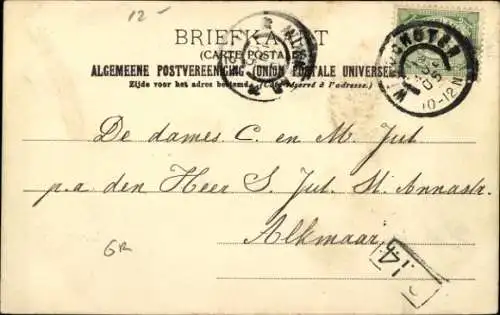 12-
BRIEFKAART
(CARTE POSTALE)
ALGEMEENE POSTVEREENIGING (UNION POSTALE UNIVERSELLE)
Zijde voor het adres bestemd. (Côté réservé à l'adresse.)
10-12 N
De dames C. en M. Jul
p.a. den Heer S. Jul St. Annastr.
Alkmaar
GR
14